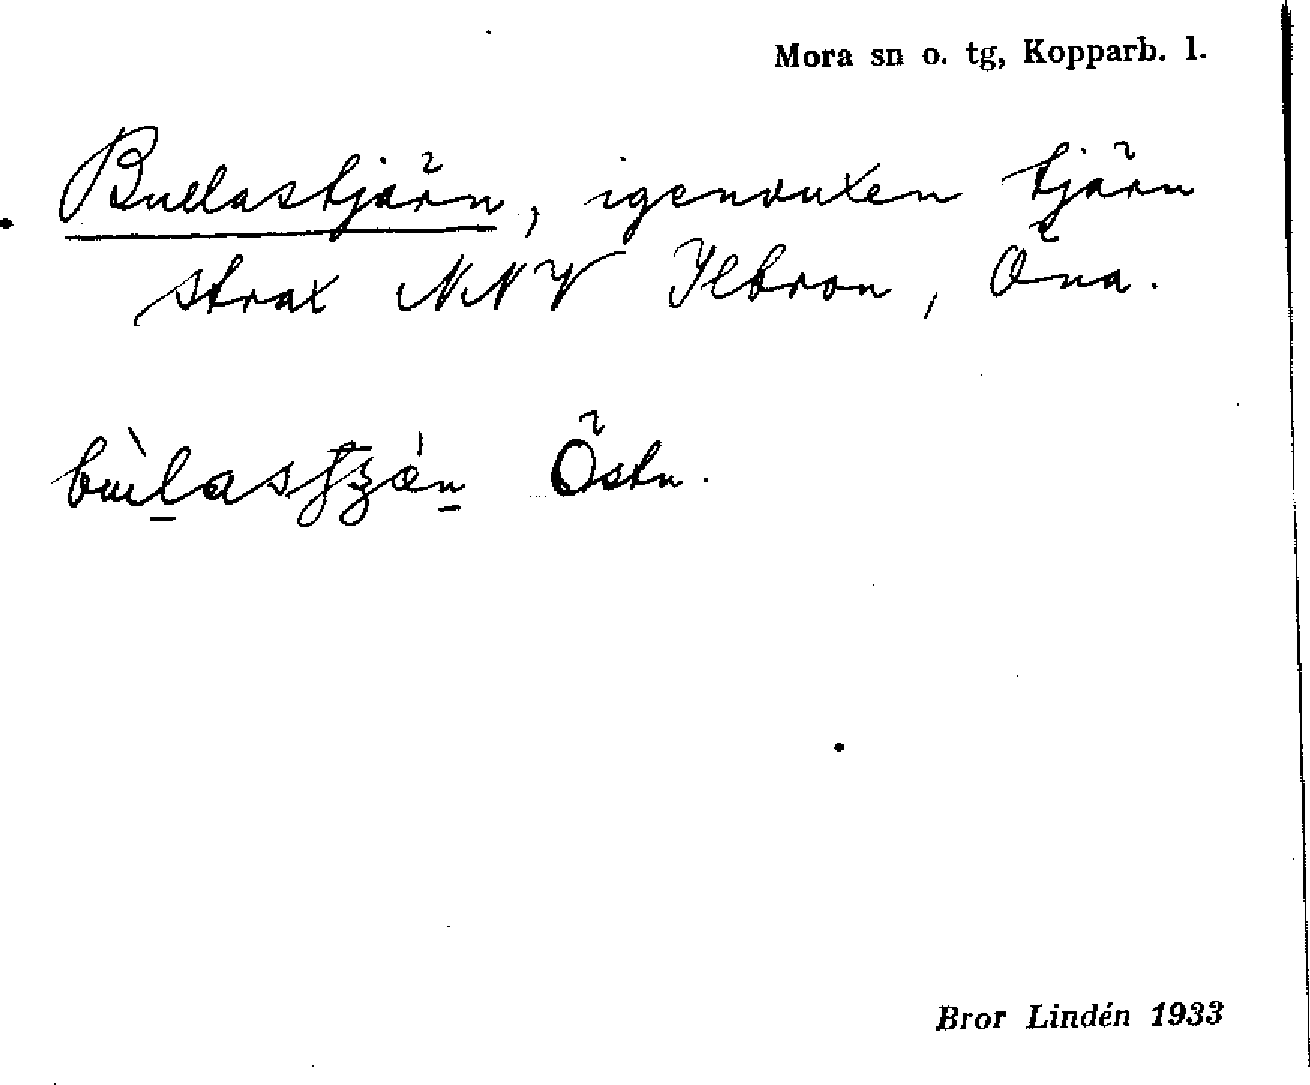 Mora sn o. tg, Kopparb. l.
Bullastjärn, igenvuxen tjärn
strax NNV Ilbron, Öna.
Östn.
Bror Lindén 1933